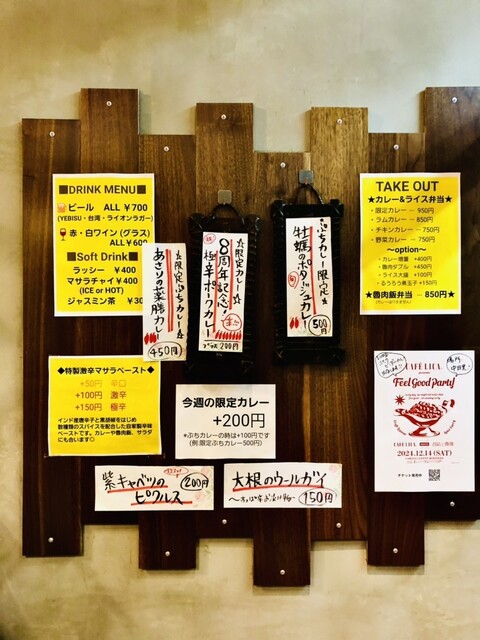 ■DRINK MENU■
ビール ALL ¥700
(YEBISU・台湾・ライオンラガー)
赤・白ワイン (グラス)
ALL ¥600
■Soft Drink■
ラッシー ¥400
マサラチャイ ¥400
(ICE or HOT)
ジャスミン茶 ¥30
☆限定ぷちカレー☆
あさりの薬膳カレー
450円
☆限定カレー☆
8周年記念
極辛ポークカレー
プラス200円
☆ぷちカレー限定☆
牡蠣のポタージュカレー
500円
TAKE OUT
★カレー&ライス弁当★
・限定カレー ― 950円
・ラムカレー ― 850円
・チキンカレー ― 750円
・野菜カレー ― 750円
～option～
・カレー増量 +400円
・魯肉ダブル +450円
・ライス大盛 +100円
・ふうろう煮玉子 +150円
★魯肉飯弁当 ― 850円★
◆特製激辛マサラペースト◆
+50円 辛口
+100円 激辛
+150円 極辛
インド産唐辛子と黒胡椒をはじめ
数種類のスパイスを配合した自家製辛味
ペーストです。カレーや魯肉飯、サラダ
にも合います◎
今週の限定カレー
+200円
*ぷちカレーの時は+100円です
(例:限定ぷちカレー500円)
紫キャベツの
ピクルス
200円
大根のウールガイ
150円
CAFÉ LICA.
Feel Good Party
CAFÉ LICA.
2024.12.14 (SAT)
チケット発売中